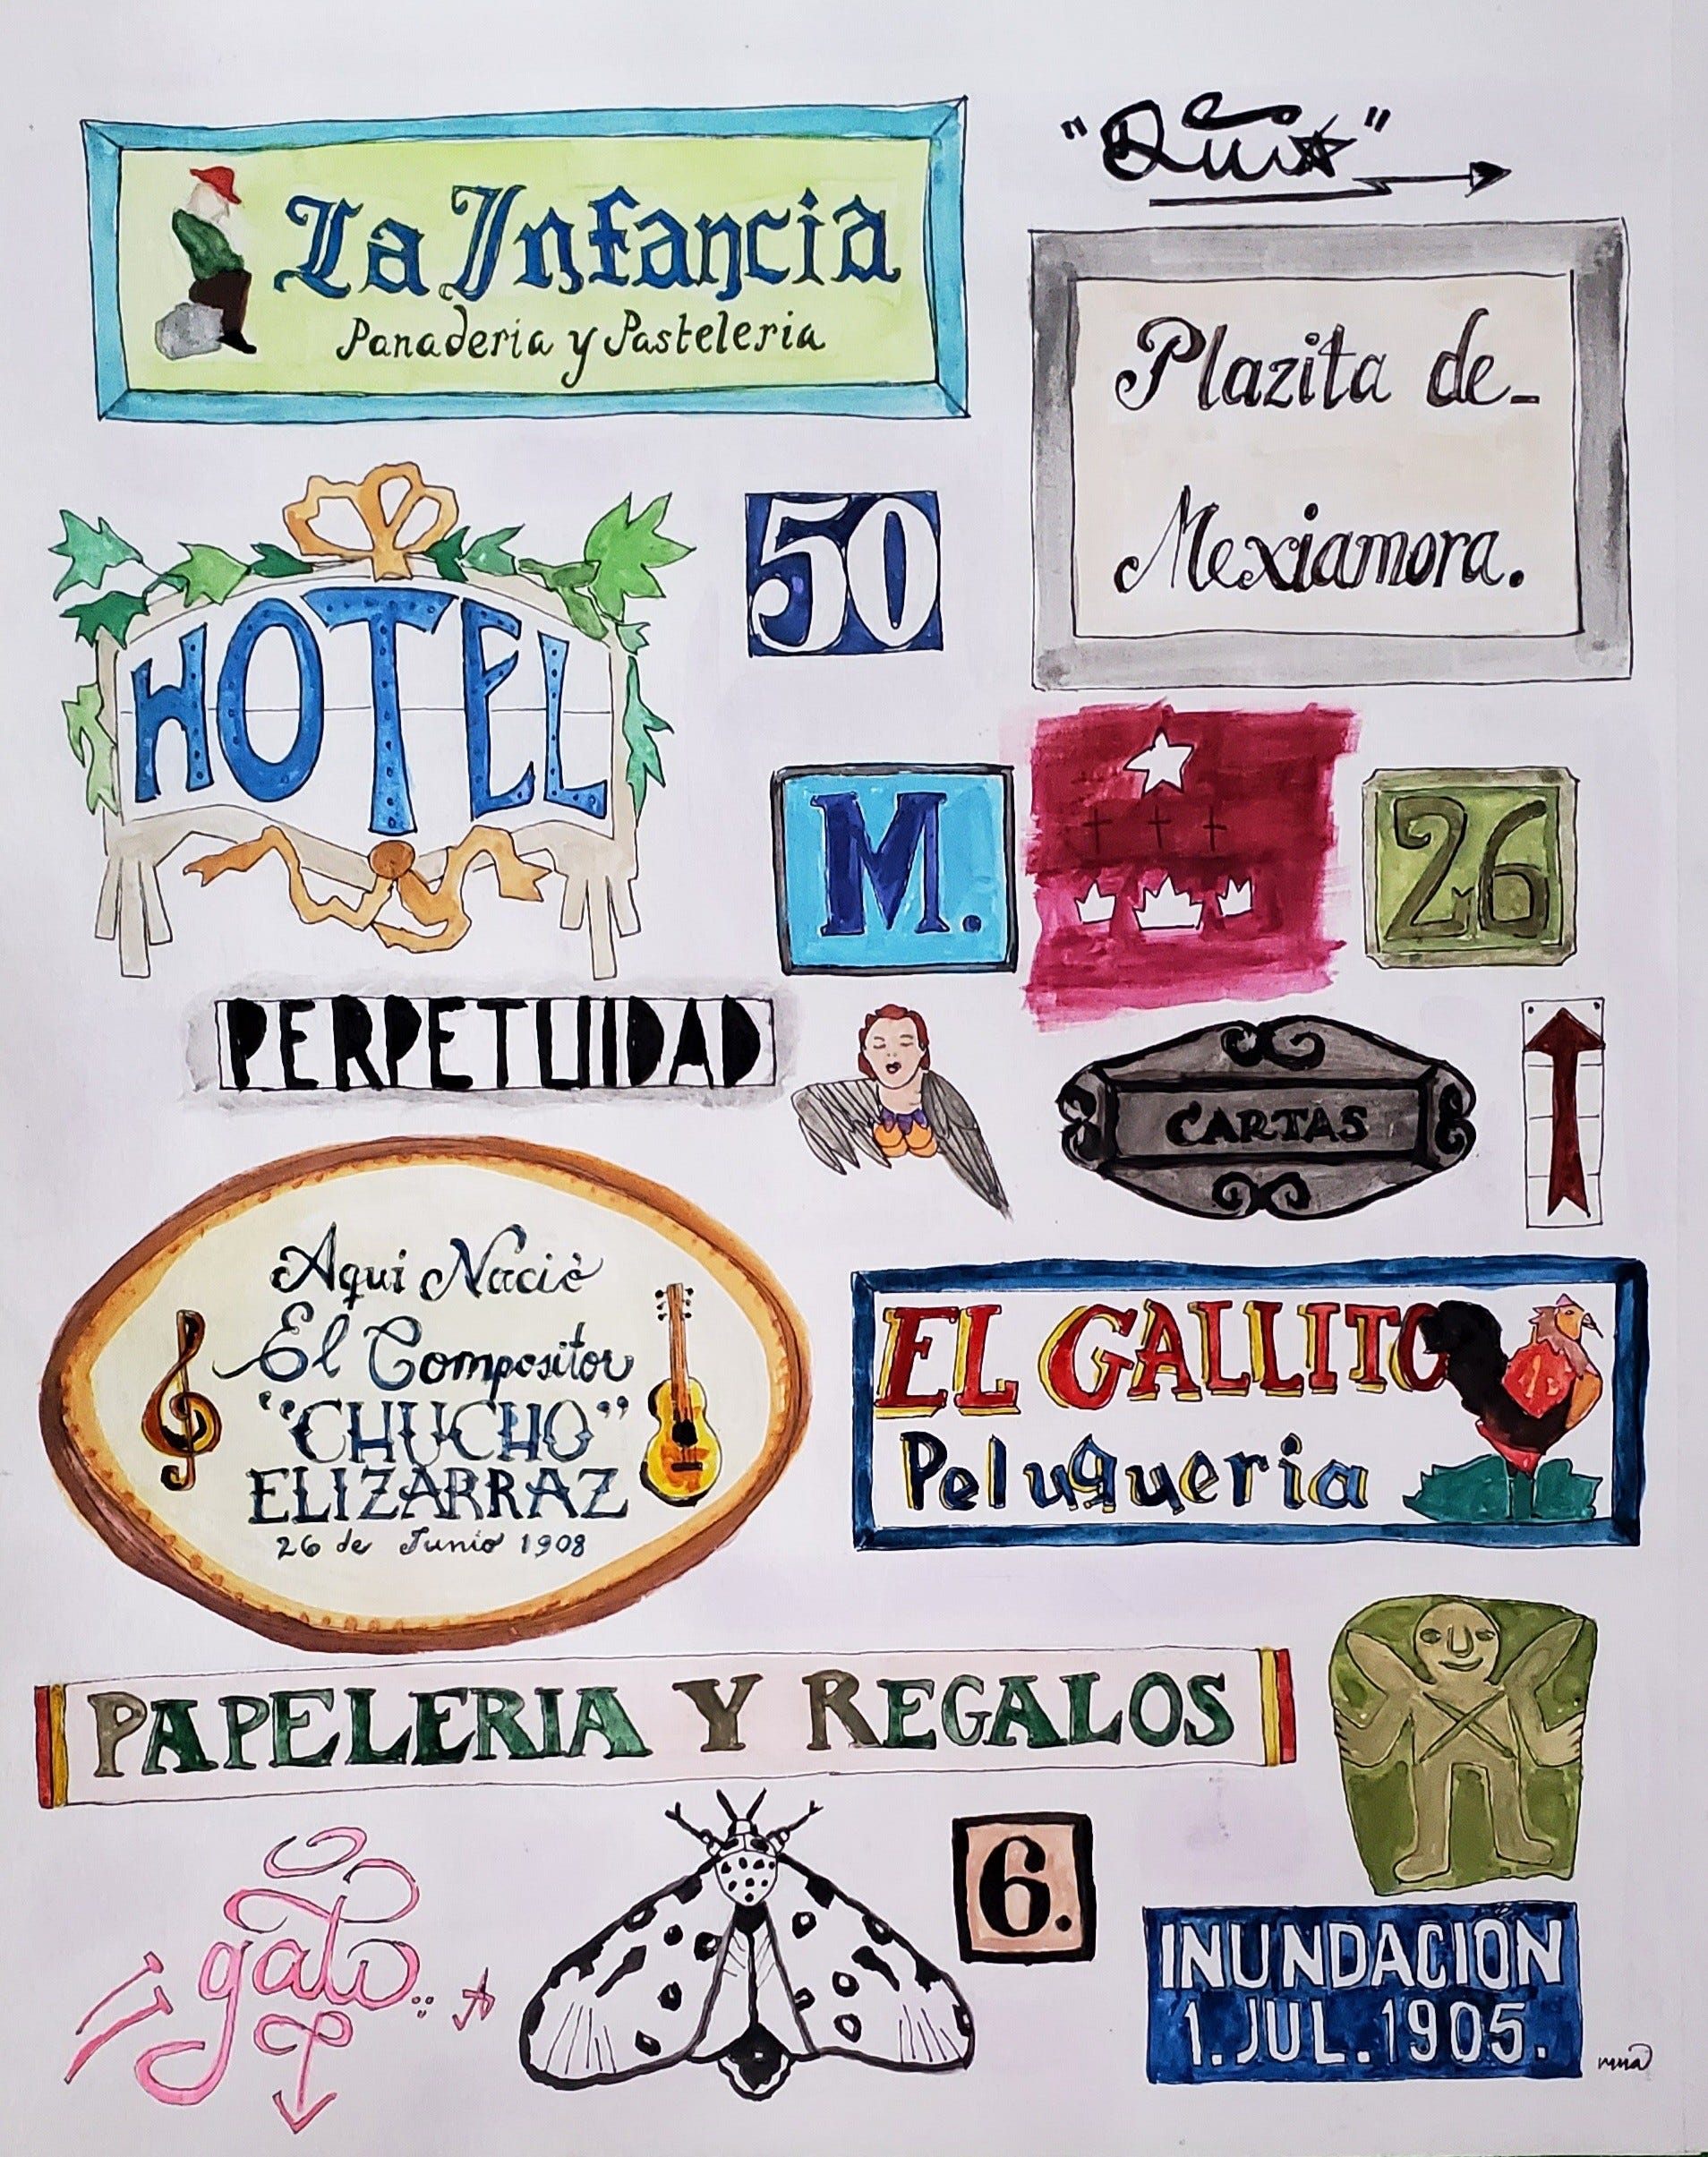 La Infancia
Panaderia y Pasteleria
Plazita de-
Mexiamora.
HOTEL
50
M.
26
PERPETUIDAD
CARTAS
Aqui Nació
El Compositor
"CHUCHO"
ELIZARRAZ
26 de Junio 1908
EL GALLITO
Peluqueria
PAPELERIA Y REGALOS
gato
6.
INUNDACIÓN
1. JUL. 1905.